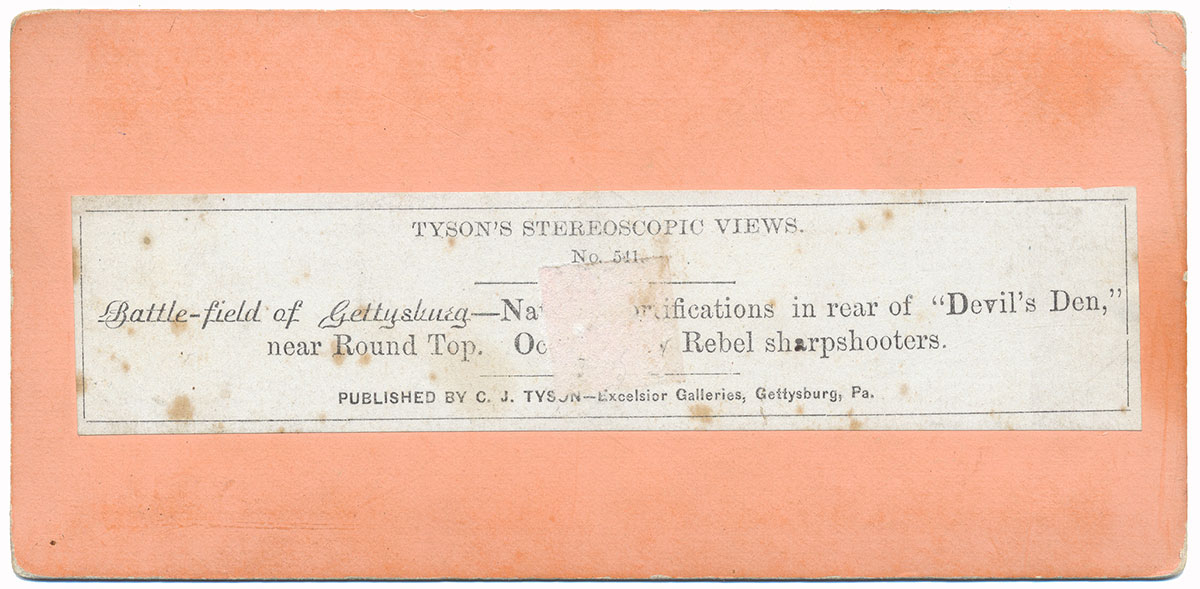 TYSON'S STEREOSCOPIC VIEWS.
No. 541.
Battle-field of Gettysburg—Na rtifications in rear of "Devil's Den,"
near Round Top. Oc y Rebel sharpshooters.
PUBLISHED BY C. J. TYSON—Excelsior Galleries, Gettysburg, Pa.